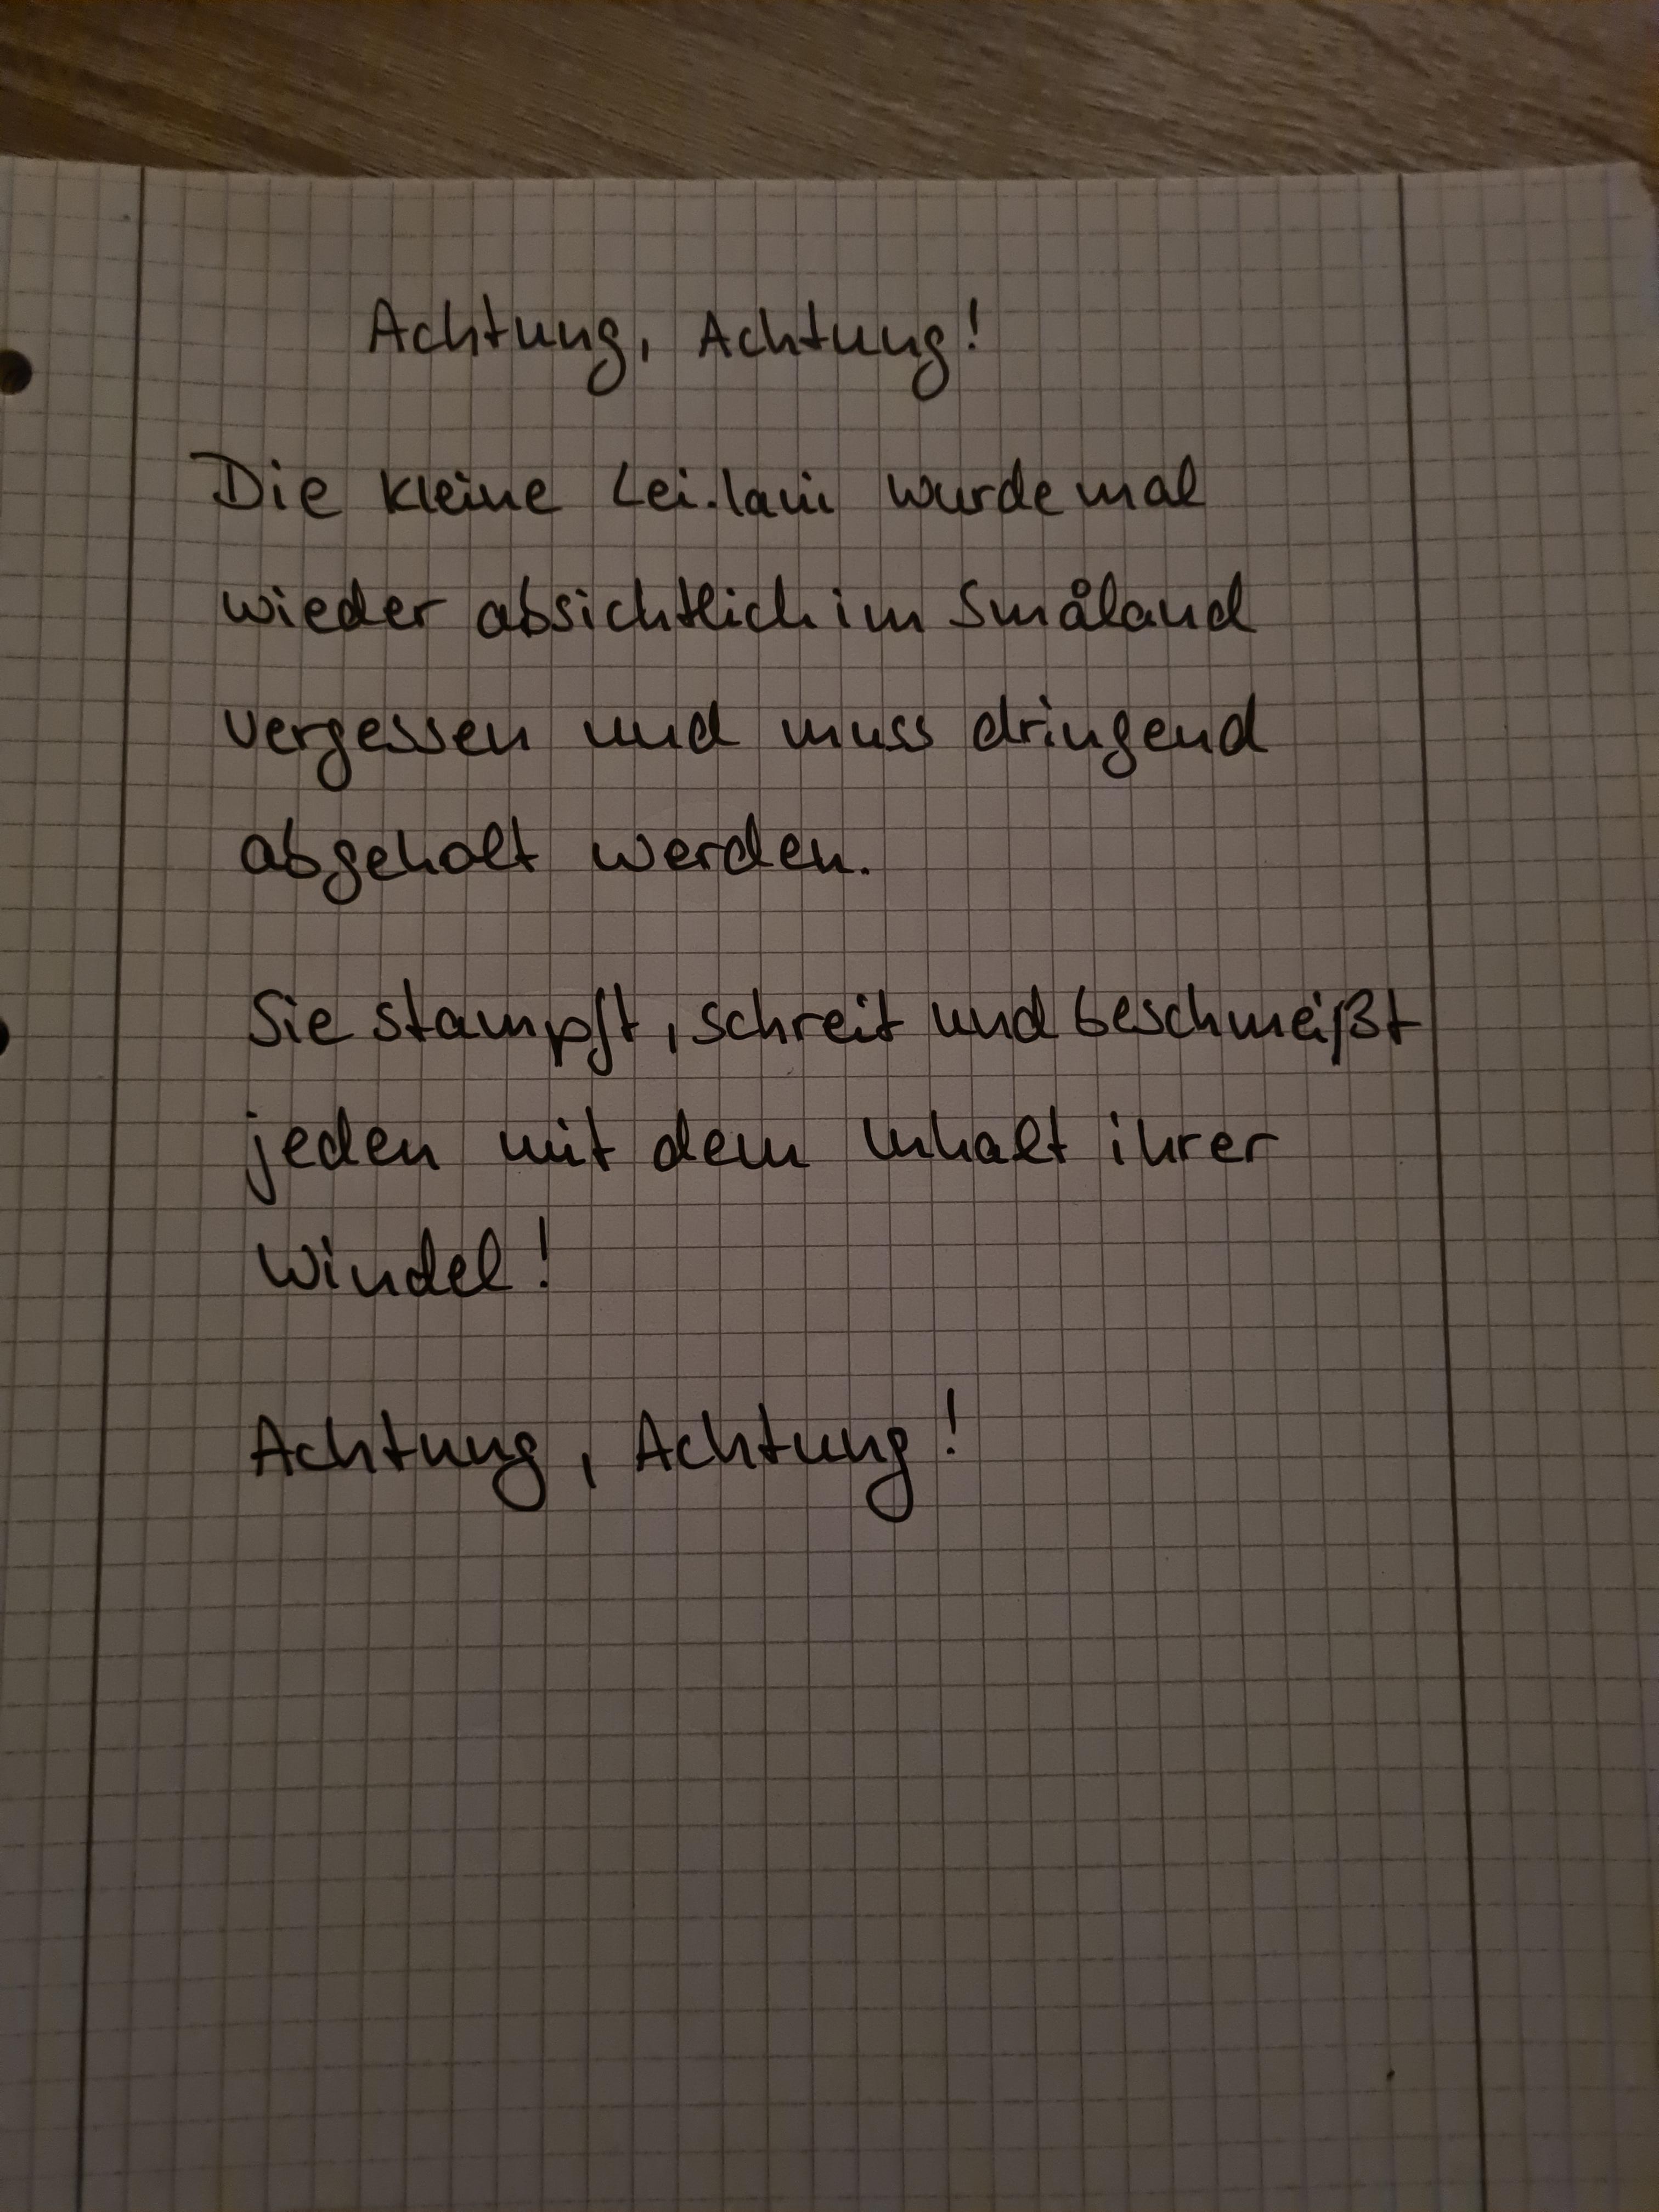 Achtung, Achtung!
Die kleine Lei.lani wurde mal
wieder absichtlich im Småland
vergessen und muss dringend
abgeholt werden.
Sie stampft, schreit und beschmeißt
jeden mit dem Inhalt ihrer
Windel!
Achtung, Achtung!